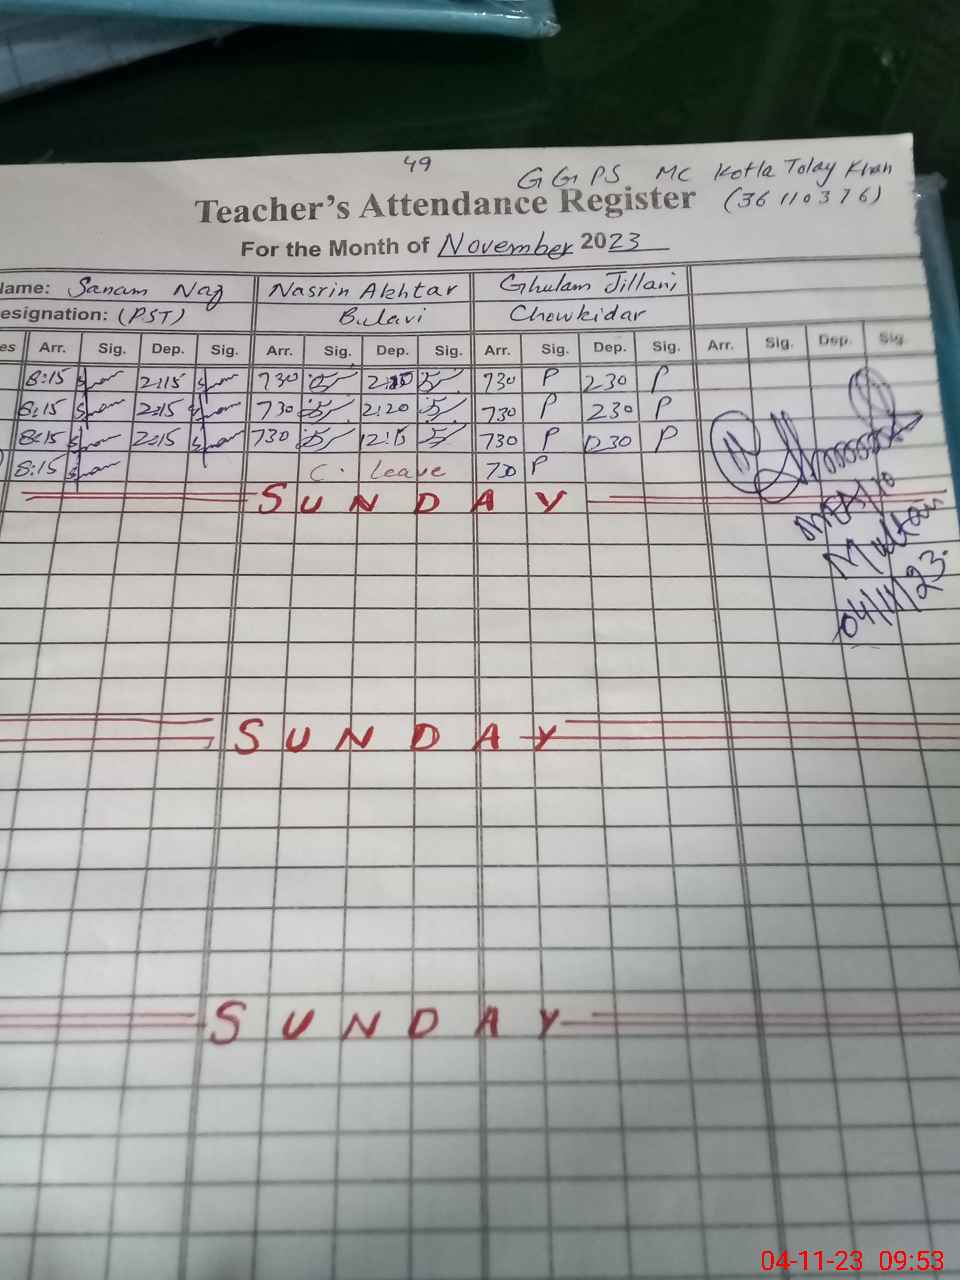 49
GGPS MC Kotla Tolay Khan
Teacher's Attendance Register (36110376)
For the Month of November 2023
ame: Sanam Naz Nasrin Akhtar Ghulam Jillani
esignation: (PST) Bulavi Chowkidar
es Arr. Sig. Dep. Sig. Arr. Sig. Dep. Sig. Arr. Sig. Dep. Sig. Arr. Sig. Dep. Sig.
8:15 2:15 730 730 P 230 P
8:15 2:15 730 2:20 730 P 230 P
8:15 2:15 730 730 P 230 P
8:15 C. Leave 730 P
SUNDAY
Multan
04/11/23.
SUNDAY
SUNDAY
04-11-23 09:53